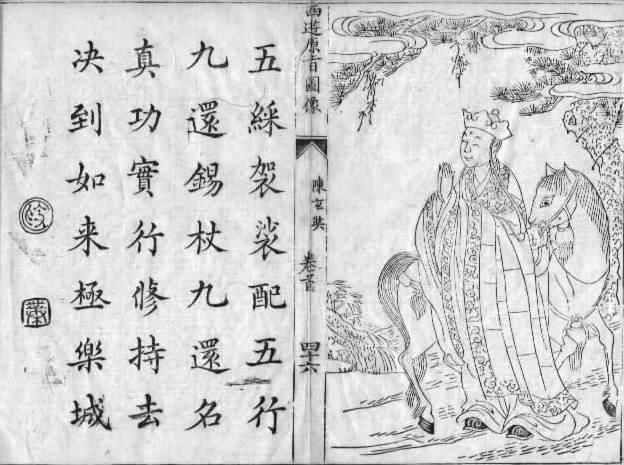 西遊原旨圖像
陳玄奘
卷首
四十六
五綵袈裟配五行
九還錫杖九還名
真功實行修持去
决到如来極樂城